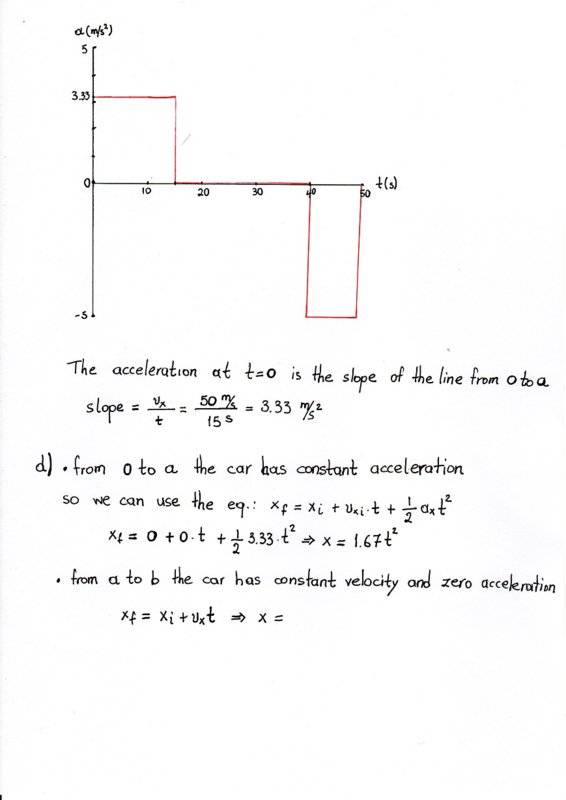 a(m/s²)
5
3.33
0
10 20 30 40 50 t(s)
-5
The acceleration at t=0 is the slope of the line from 0 to a
slope = vₓ/t = 50 m/s / 15 s = 3.33 m/s²
d) • from 0 to a the car has constant acceleration
so we can use the eq.: x_f = x_i + v_xi · t + 1/2 aₓt²
x_f = 0 + 0·t + 1/2 3.33·t² ⇒ x = 1.67t²
• from a to b the car has constant velocity and zero acceleration
x_f = x_i + vₓt ⇒ x =